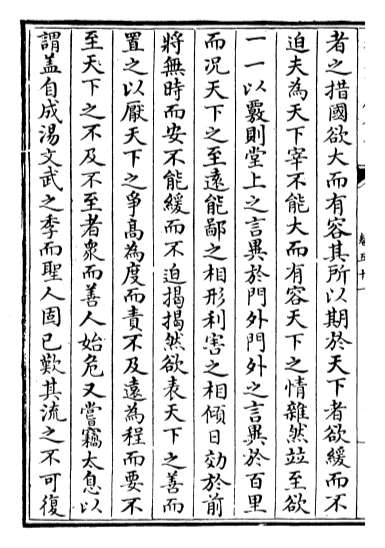 者之措國欲大而有容其所以期於天下者欲緩而不
迫夫為天下宰不能大而有容天下之情雜然竝至欲
一一以覈則堂上之言異於門外門外之言異於百里
而况天下之至遠能鄙之相形利害之相傾日効於前
將無時而安不能緩而不迫揭揭然欲表天下之善而
置之以厭天下之爭高為度而責不及遠為程而要不
至天下之不及不至者衆而善人始危又嘗竊太息以
謂盖自成湯文武之季而聖人固已歎其流之不可復